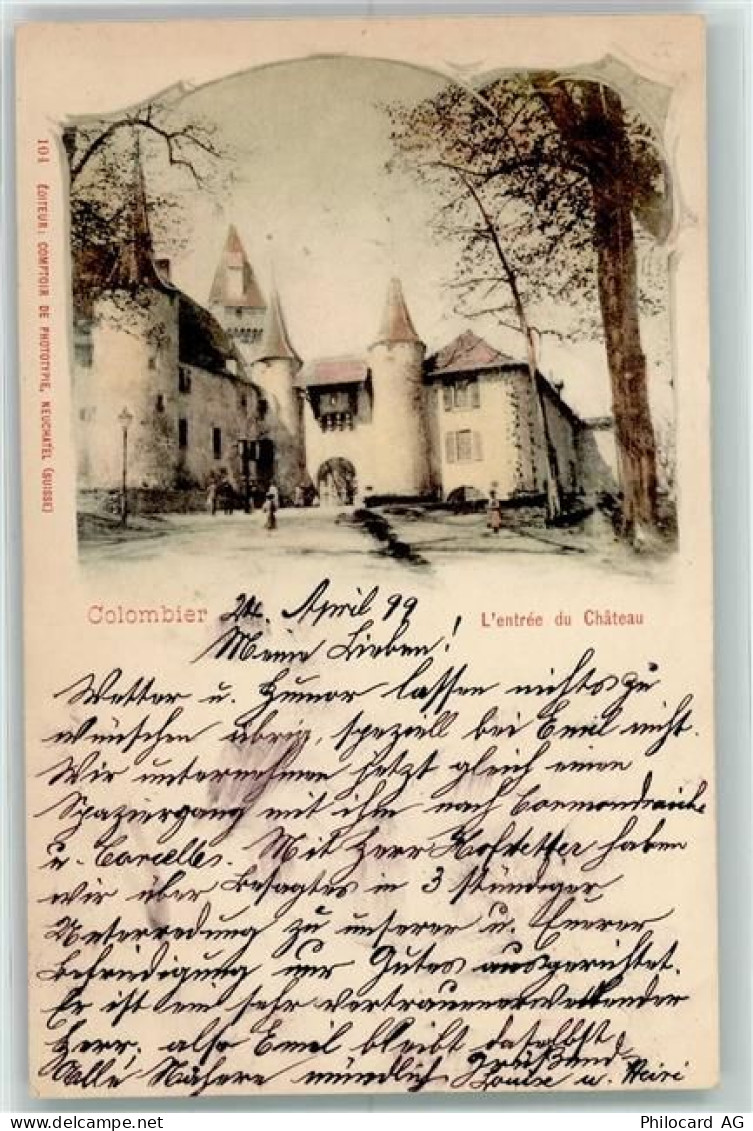 104 ÉDITEUR: COMPTOIR DE PHOTOTYPIE, NEUCHATEL (SUISSE)
Colombier 24. April 99 L'entrée du Château
Meine Lieben!
Wetter u. Humor lassen nichts zu
wünschen übrig, speziell bei Emil nicht.
Wir unternehmen jetzt gleich einen
Spaziergang mit ihm nach Cormondrèche
u. Corcelles. Mit Herr Hofstetter haben
wir über Besagtes in 3 stündiger
Unterredung zu unserer u. Euerer
Befriedigung nur Gutes ausgerichtet.
Er ist ein sehr vertrauenerweckender
Herr, also Emil bleibt daselbst.
Alles Nähere mündlich Grüßend
Louise u. Heiri
Philocard AG